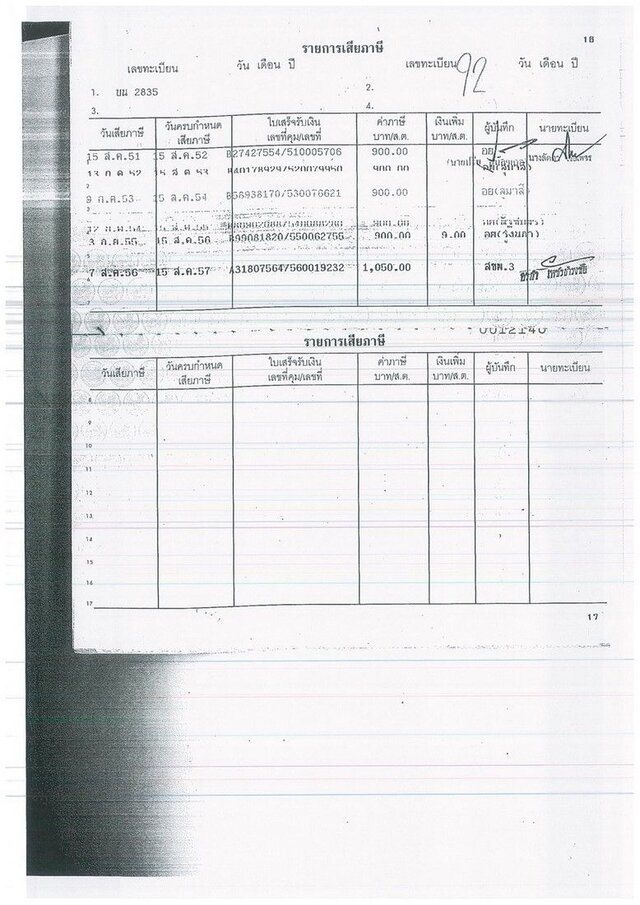 16
รายการเสียภาษี
เลขทะเบียน วัน เดือน ปี เลขทะเบียน วัน เดือน ปี
92
1. บม 2835 2.
3. 4.
วันเสียภาษี วันครบกำหนดเสียภาษี ใบเสร็จรับเงิน เลขที่คุม/เลขที่ ค่าภาษี บาท/ส.ต. เงินเพิ่ม บาท/ส.ต. ผู้บันทึก นายทะเบียน
15 ส.ค.51 15 ส.ค.52 B27427554/510005706 900.00
13 ก.ค.52 15 ส.ค.53 900.00
9 ก.ค.53 15 ส.ค.54 B58938170/530076621 900.00
900.00
3 ก.ค.55 15 ส.ค.56 B99081820/550062755 900.00 9.00
7 ส.ค.56 15 ส.ค.57 A31807564/560019232 1,050.00 สชพ.3
0012140
รายการเสียภาษี
วันเสียภาษี วันครบกำหนดเสียภาษี ใบเสร็จรับเงิน เลขที่คุม/เลขที่ ค่าภาษี บาท/ส.ต. เงินเพิ่ม บาท/ส.ต. ผู้บันทึก นายทะเบียน
8
9
10
11
12
13
14
15
16
17
17